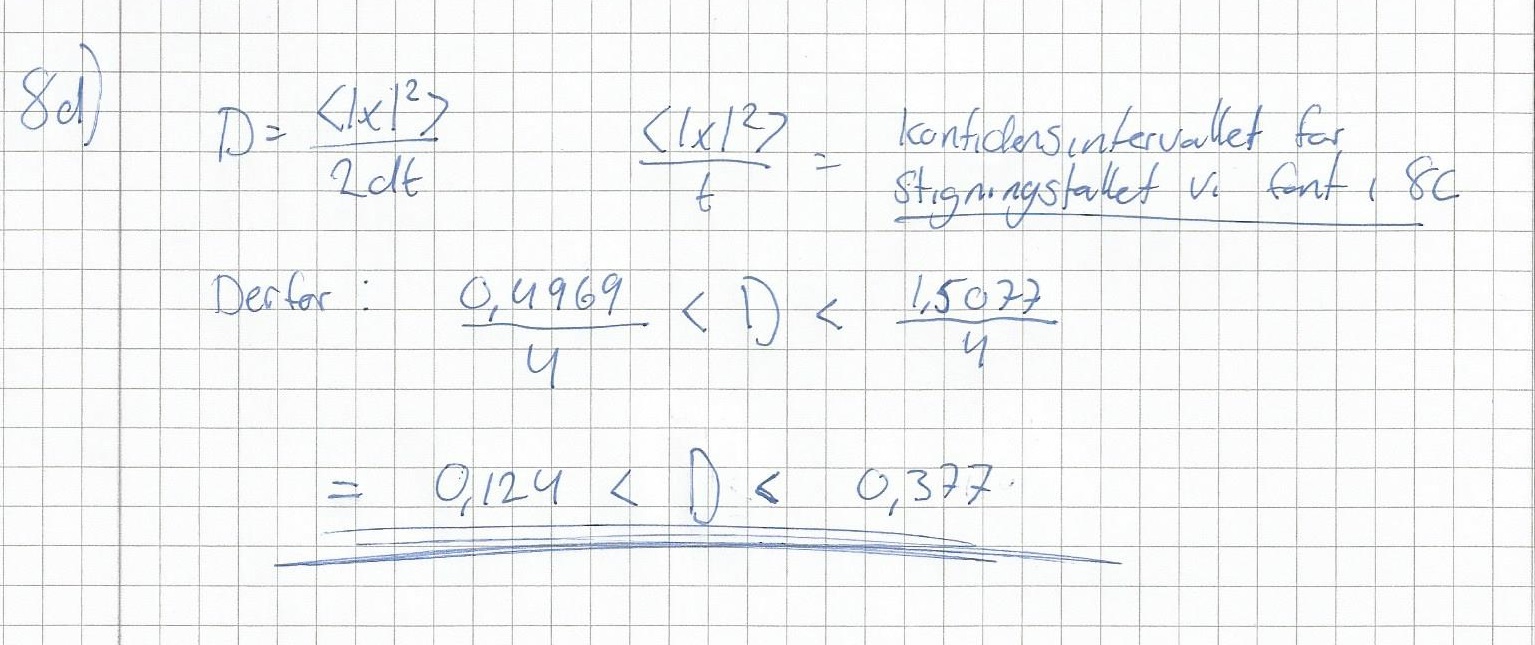 8d) D = <|x|²> / 2dt    <|x|²> / t = konfidensintervallet for
stigningstallet vi fant i 8c
Derfor : 0,4969 / 4 < D < 1,5077 / 4
= 0,124 < D < 0,377